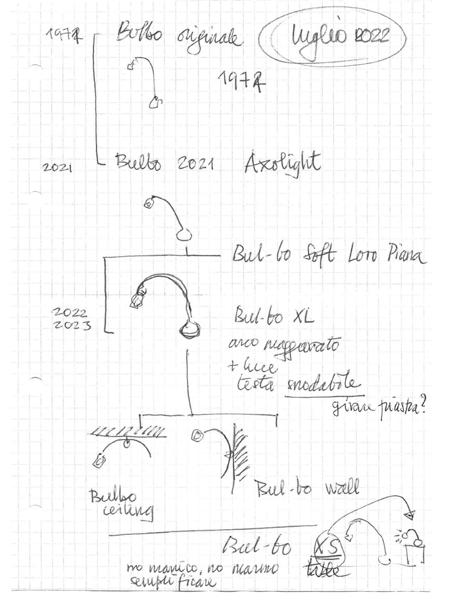 luglio 2022
1971 Bulbo originale
1971
2021 Bulbo 2021 Axolight
Bul-bo Soft Loro Piana
2022
2023
Bul-bo XL
arco maggiorato
+ luce
testa snodabile
girare piastra?
Bulbo
ceiling
Bul-bo wall
Bul-bo XS
no manico, no marmo
semplificare